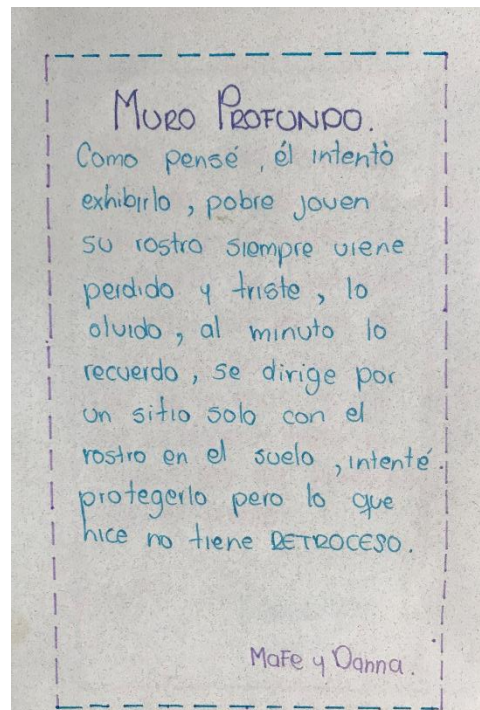 MURO PROFUNDO.
Como pensé, él intentò
exhibirlo, pobre joven
su rostro siempre viene
perdido y triste, lo
olvido, al minuto lo
recuerdo, se dirige por
un sitio solo con el
rostro en el suelo, intenté
protegerlo pero lo que
hice no tiene RETROCESO.
Mafe y Danna.